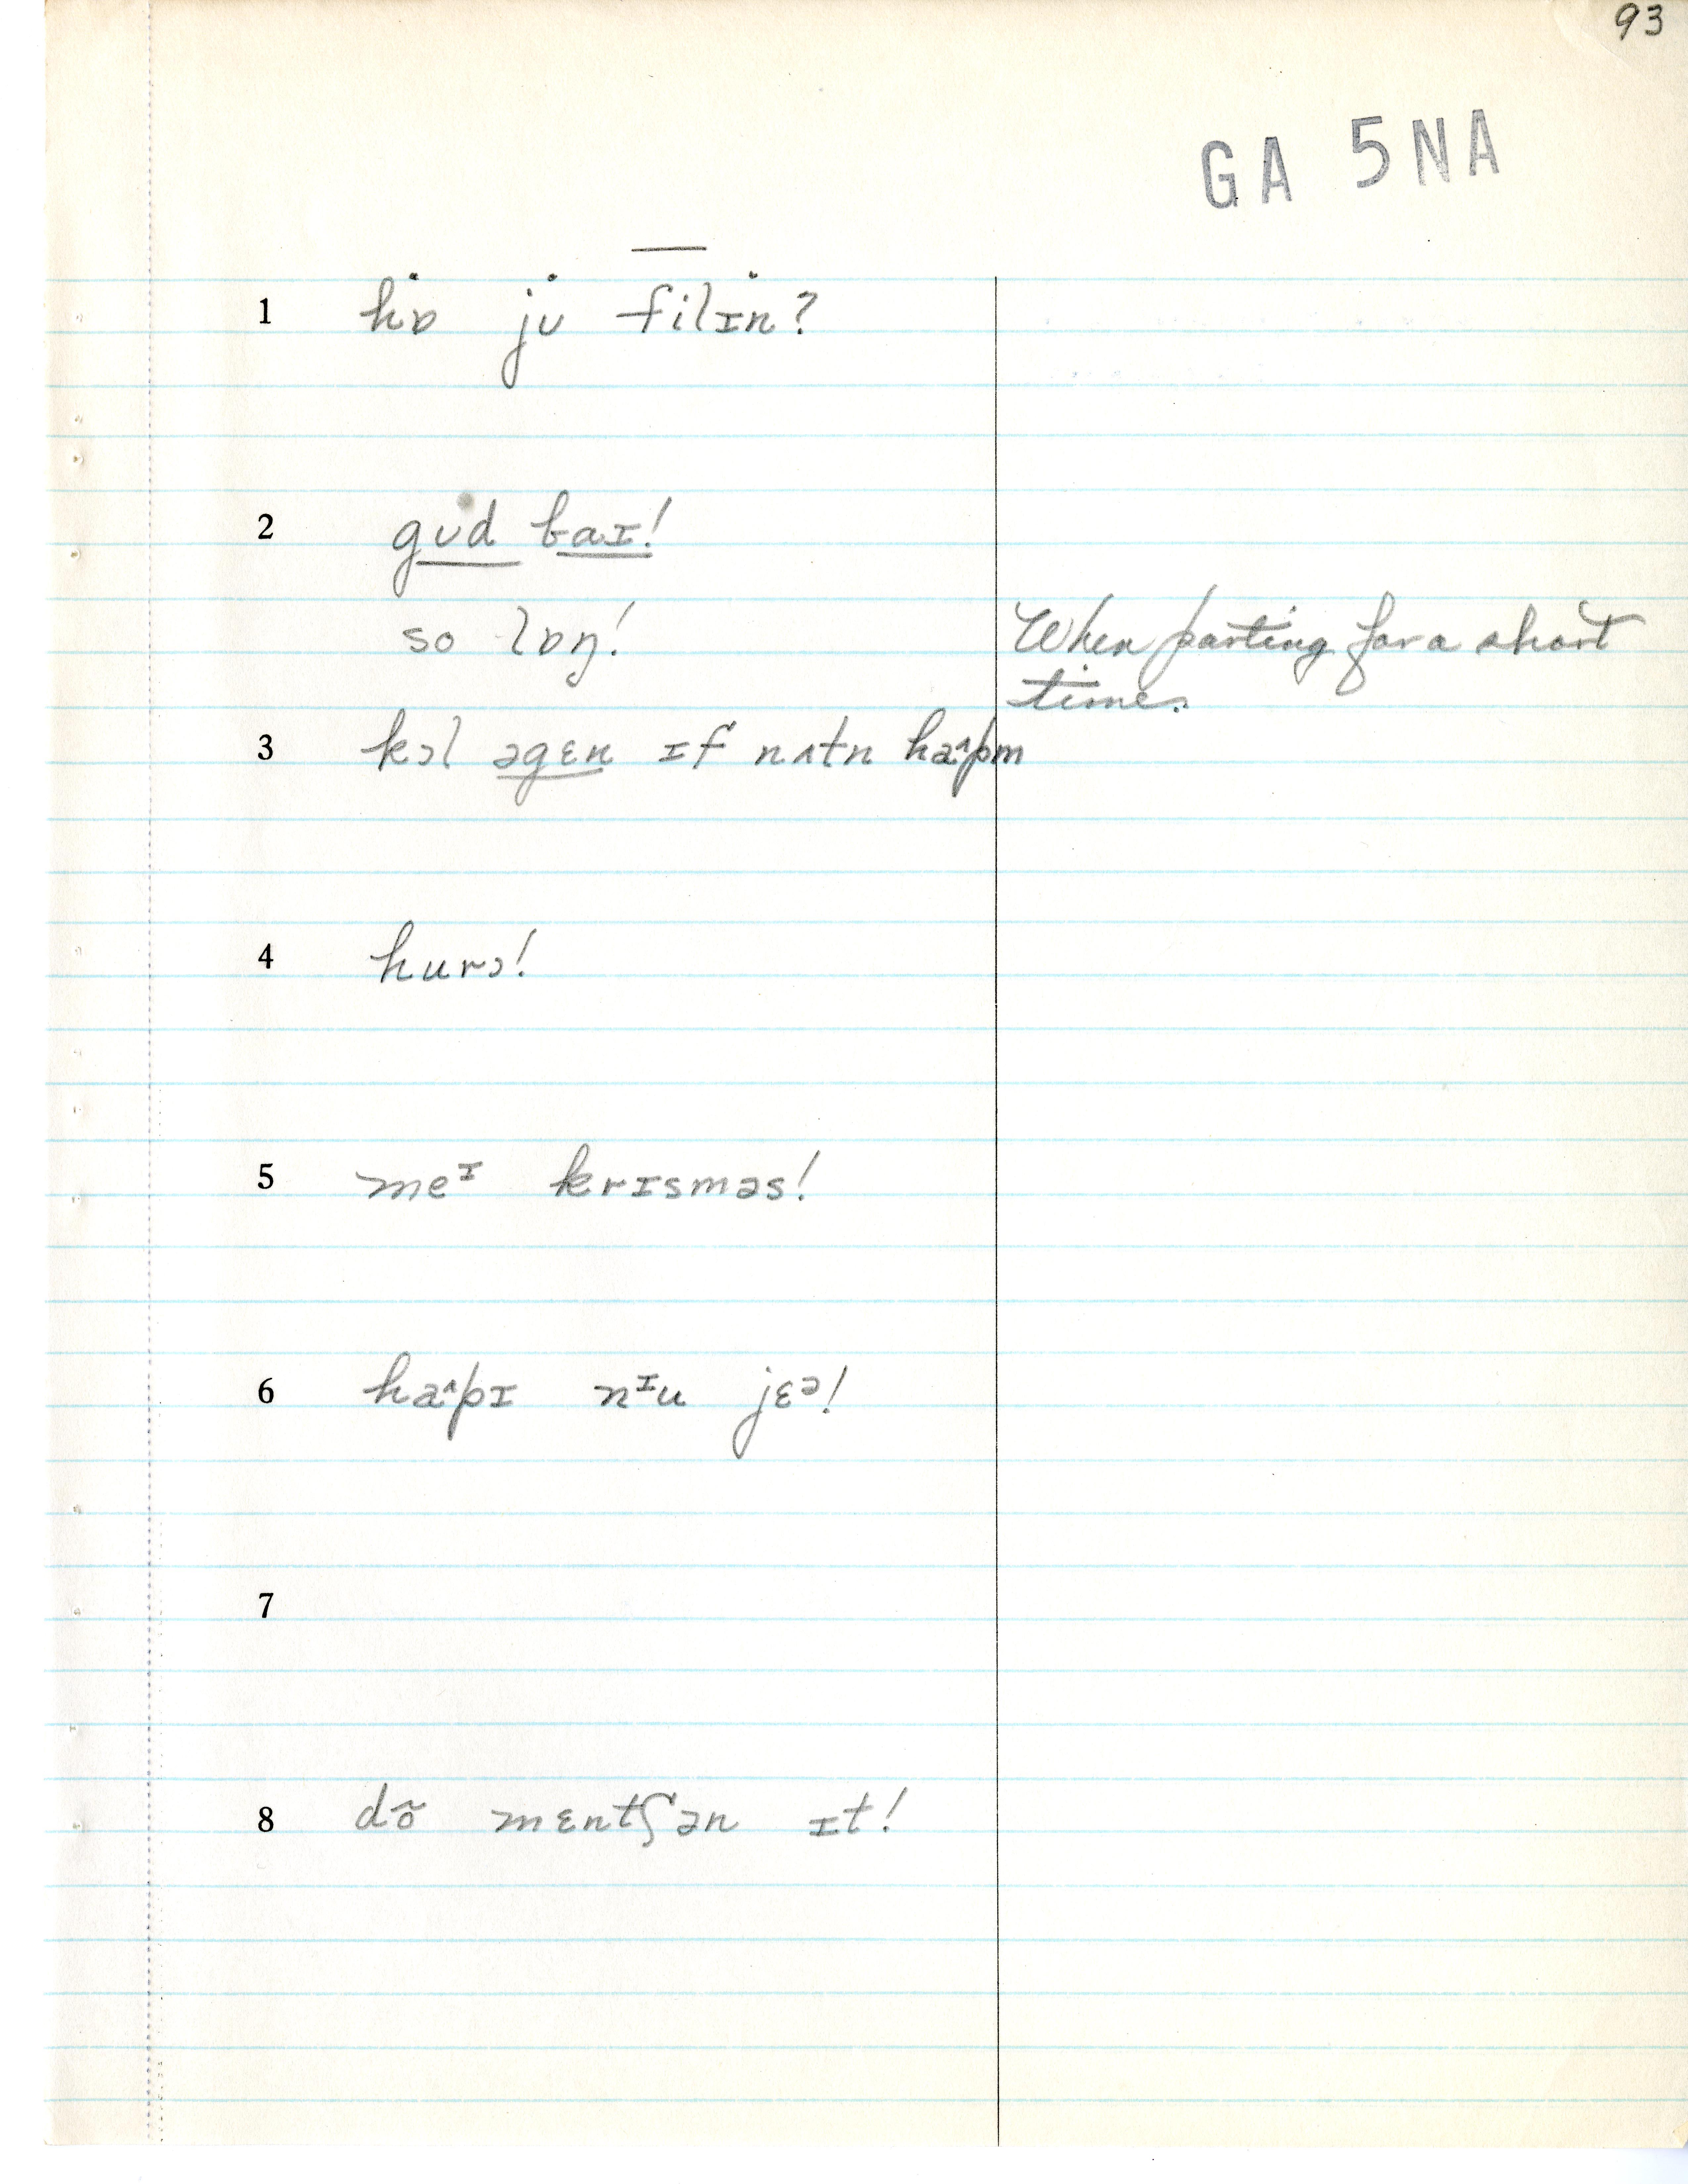 93
GA 5NA
1 hɒ jʊ filɪn?
2 gʊd baɪ!
so lɒŋ! When parting for a short
time.
3 kɔl əgɛn ɪf nʌtn ha^pm
4 hurɔ!
5 meᶦ krɪsməs!
6 ha^pɪ nᶦu jɛᵊ!
7
8 dõ mɛntʃən ɪt!